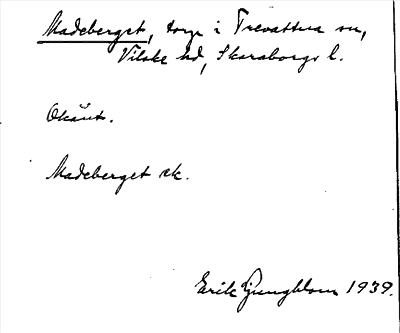 Madeberget, torp i Trevattna sn,
Vilske hd, Skaraborgs l.
Okänt.
Madeberget sk.
Erik Ljungblom 1939.